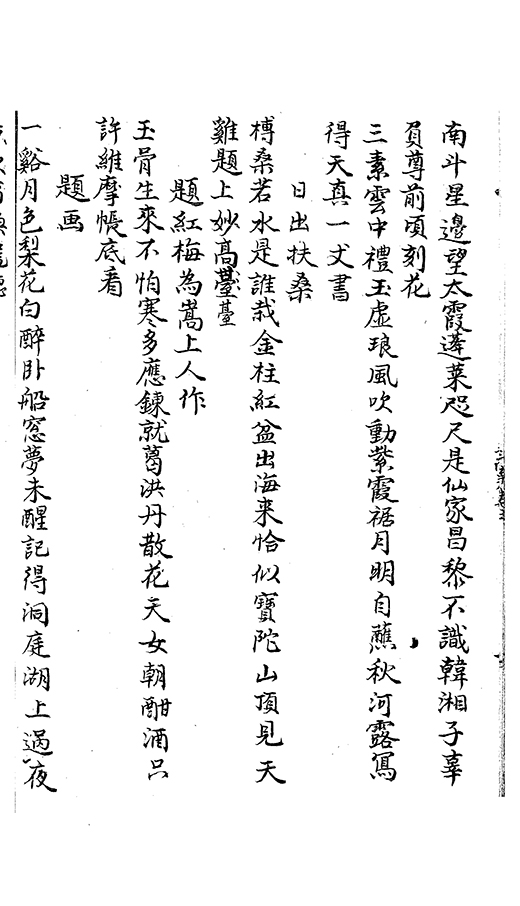 南斗星邊望太霞蓬莱咫尺是仙家昌黎不識韓湘子辜
負尊前頃刻花
三素雲中禮玉虛琅風吹動紫霞裾月明自蘸秋河露寫
得天真一丈書
日出扶桑
榑桑若水是誰栽金柱紅盆出海来恰似寶陀山頂見天
雞題上妙高臺
題紅梅為嵩上人作
玉骨生來不怕寒多應鍊就葛洪丹散花天女朝酣酒只
許維摩帳底看
題画
一谿月色梨花白醉卧船窓夢未醒記得洞庭湖上過夜